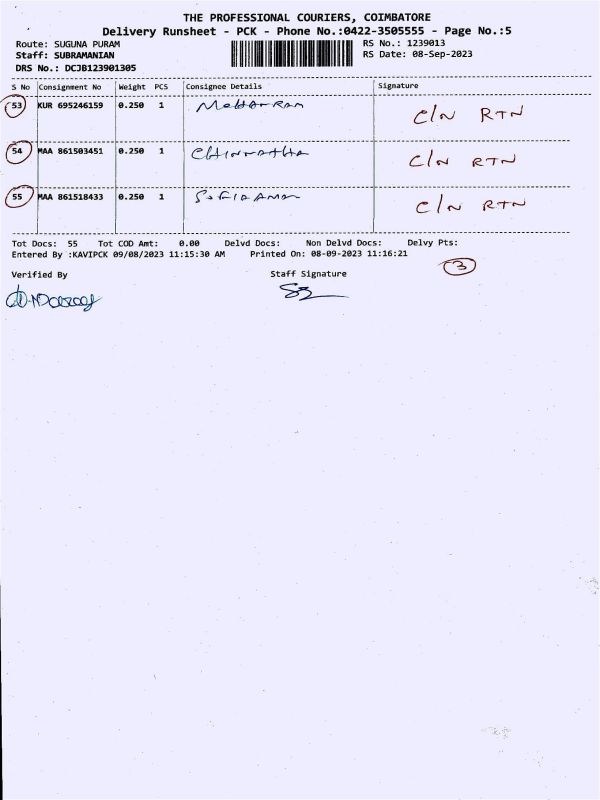 THE PROFESSIONAL COURIERS, COIMBATORE
Delivery Runsheet - PCK - Phone No.:0422-3505555 - Page No.:5
Route: SUGUNA PURAM RS No.: 1239013
Staff: SUBRAMANIAN RS Date: 08-Sep-2023
DRS No.: DCJB123901305
S No Consignment No Weight PCS Consignee Details Signature
53 KUR 695246159 0.250 1 C/N RTN
54 MAA 861503451 0.250 1 C/N RTN
55 MAA 861518433 0.250 1 C/N RTN
Tot Docs: 55 Tot COD Amt: 0.00 Delvd Docs: Non Delvd Docs: Delvy Pts:
Entered By :KAVIPCK 09/08/2023 11:15:30 AM Printed On: 08-09-2023 11:16:21
3
Verified By Staff Signature